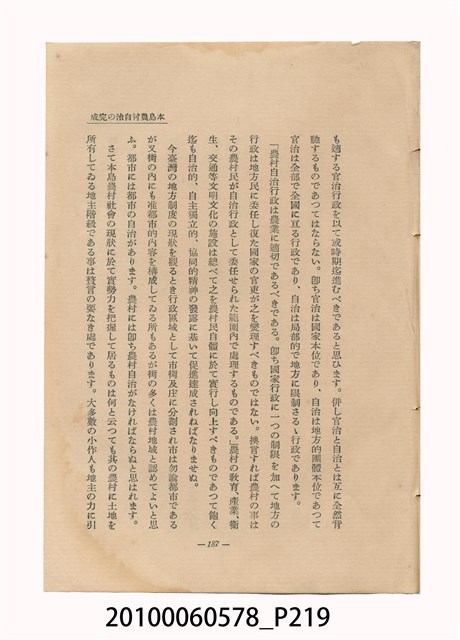 本島農村自治の完成
も適する官治行政を以て或時期迄進むべきであると思ひます。併し官治と自治とは互に全然背
馳するものであつてはならない。卽ち官治は國家本位であり、自治は地方的團體本位であつて
官治は全部で全國に亘る行政であり、自治は局部的で地方に限制さるゝ行政であります。
「農村自治行政は農業に適切であるべきである。卽ち國家行政に一つの制限を加へて地方の
行政は地方民に委任し復た國家の官吏が之を變理すべきものではない。換言すれば農村の事は
その農村民が自治行政として委任せられた範圍內で處理するものである。」農村の敎育、產業、衞
生、交通等文明文化の施設は總べて之を農村民自體に於て實行し向上すべきものであつて飽く
迄も自治的、自主獨立的、協同的精神の發露に基いて促進達成されねばなりませぬ。
今臺灣の地方制度の現狀を觀るとき行政區域として市街及庄に分割され市は勿論都市である
が又街の內にも准都市的內容を構成してゐる所もあるが街の多くは農村地域と認めてよいと思
ふ。都市には都市の自治があります。農村には卽ち農村自治がなければならぬと思はれます。
さて本島農村社會の現狀に於て實勢力を把握して居るものは何と云つても其の農村に土地を
所有してゐる地主階級である事は贅言の要なき處であります。大多數の小作人も地主の力に引
— 187 —
20100060578_P219